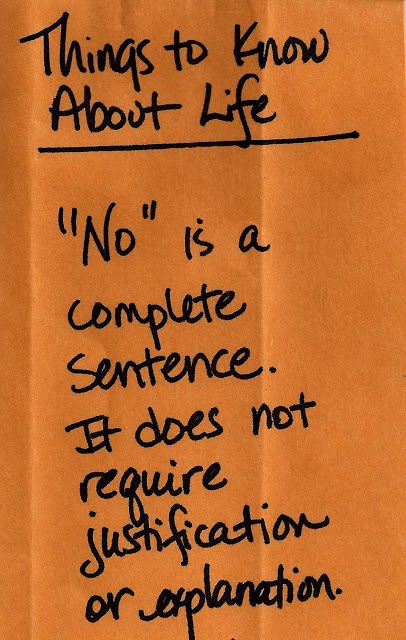 Things to Know
About Life
"No" is a
complete
sentence.
It does not
require
justification
or explanation.